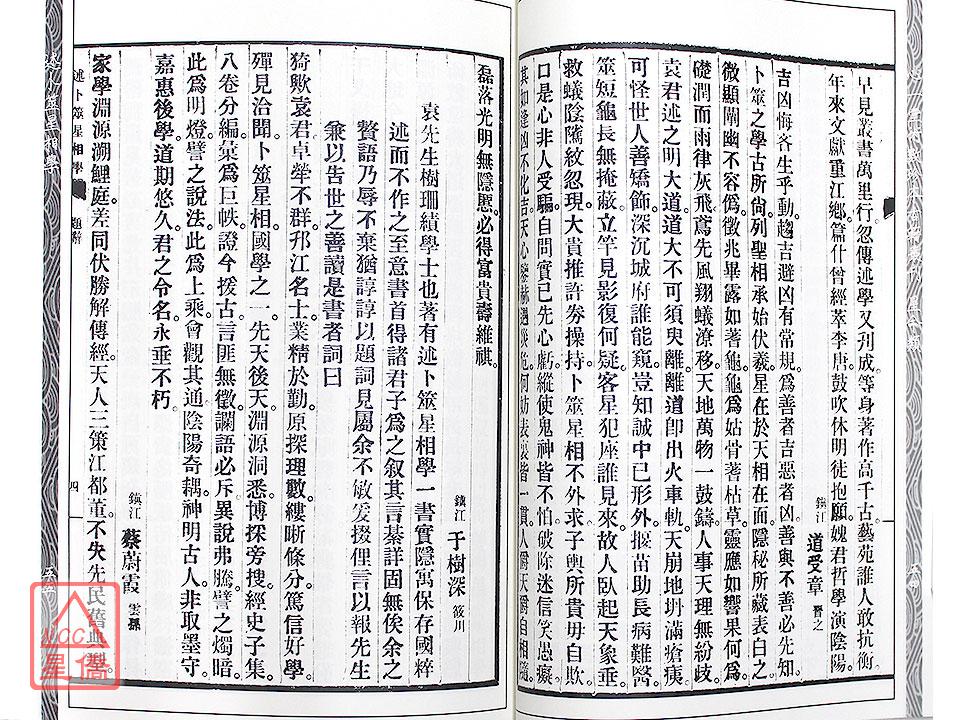 早見叢書萬里行。忽傳述學又刋成。等身著作高千古。藝苑誰人敢抗衡。
年來文獻重江鄉。篇什曾經萃李唐。鼓吹休明徒抱願。媿君哲學演陰陽。
鎮江 道受章 晉之
吉凶悔吝生乎動。趨吉避凶有常規。爲善者吉惡者凶。善與不善必先知。
卜筮之學古所尙。列聖相承始伏羲。星在於天相在面。隱秘所藏表白之。
微顯闡幽不容僞。徵兆畢露如蓍龜。龜爲姑骨蓍枯草。靈應如響果何爲。
礎潤而雨律灰飛。鳶先風翔蟻潦移。天地萬物一鼓鑄。人事天理無紛歧。
袁君述之明大道。道大不可須臾離。離道卽出火車軌。天崩地坍滿瘡痍。
可怪世人善矯飾。深沉城府誰能窺。豈知誠中已形外。揠苗助長病難醫。
筮短龜長無掩蔽。立竿見影復何疑。客星犯座誰見來。故人臥起天象垂。
救蟻陰隲紋忽現。大貴推許劵操持。卜筮星相不外求。子輿所貴毋自欺。
口是心非人受騙。自問實已先心虧。縱使鬼神皆不怕。破除迷信笑愚癡。
其如逢凶不化吉。天心
何妨表裏皆一貫。人爵天爵自相隨。
磊落光明無隱慝。必得富貴壽維祺。
鎮江 于樹深 筱川
袁先生樹珊績學士也著有述卜筮星相學一書實隱寓保存國粹
述而不作之至意書首得諸君子爲之叙其言綦詳固無俟余之
贅語乃辱不棄猶諄諄以題詞見屬余不敏爰掇俚言以報先生
兼以告世之善讀是書者詞曰
猗歟袁君。卓犖不群。邗江名士。業精於勤。原探理數。縷晰條分。篤信好學。
殫見洽聞。卜筮星相。國學之一。先天後天。淵源洞悉。博探旁搜。經史子集。
八卷分編。彙爲巨帙。證今援古。言匪無徵。讕語必斥。異說弗騰。譬之燭暗。
此爲明燈。譬之說法。此爲上乘。會觀其通。陰陽奇耦。神明古人。非取墨守。
嘉惠後學。道期悠久。君之令名。永垂不朽。
鎮江 蔡蔚霞 雲孫
家學淵源溯鯉庭。差同伏勝解傳經。天人三策江都董。不失先民舊典型。
述卜筮星相學
題辭
四
NCC
星僑